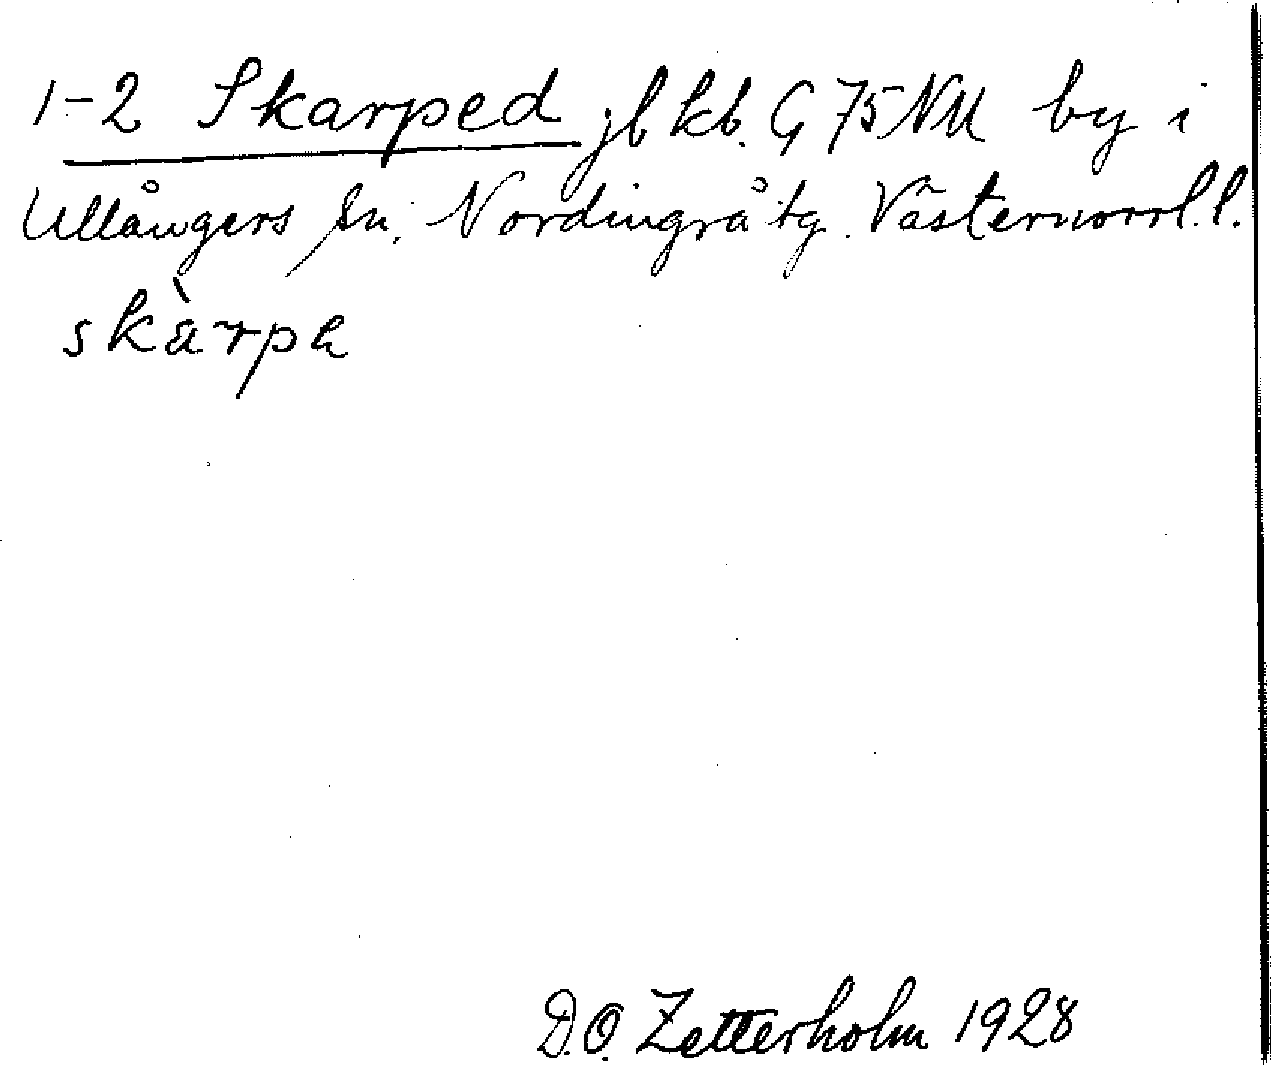 1-2 Skarped jb kb. G 75 NU by i
Ullångers sn. Nordingrå tg. Västernorrl. l.
skàrpe
D.O. Zetterholm 1928